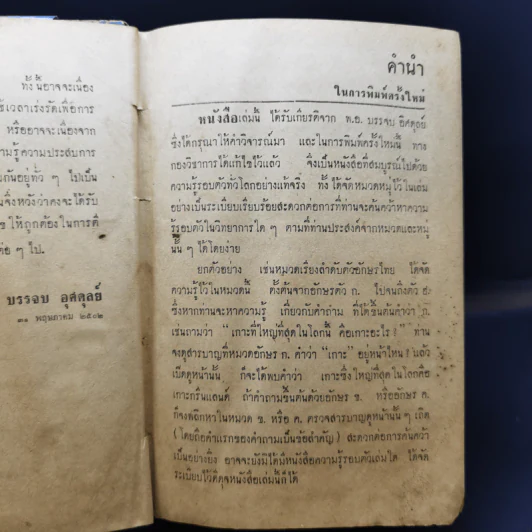 ทั้งนี้อาจจะเนื่อง
เวลาเร่งรัดเพื่อการ
หรืออาจจะเนื่องจาก
ความรู้ความประสบการ
กันอยู่ทั่ว ๆ ไปเป็น
จึงหวังว่าคงจะได้รับ
ให้ถูกต้องในการตี
ต่อ ๆ ไป.
บรรจบ อุสตุลย์
๓๑ พฤษภาคม ๒๕๐๒
คำนำ
ในการพิมพ์ครั้งใหม่
หนังสือเล่มนี้ ได้รับเกียรติจาก พ.อ. บรรจบ อุสตุลย์
ซึ่งได้กรุณาให้คำวิจารณ์มา และในการพิมพ์ครั้งใหม่นี้ ทาง
กองวิชาการได้แก้ไขไว้แล้ว จึงเป็นหนังสือที่สมบูรณ์ไปด้วย
ความรู้รอบตัวทั่วโลกอย่างแท้จริง ทั้งได้จัดหมวดหมู่ไว้ในเล่ม
อย่างเป็นระเบียบเรียบร้อยสะดวกต่อการที่ท่านจะค้นคว้าหาความ
รู้รอบตัวในวิทยาการใด ๆ ตามที่ท่านประสงค์จากหมวดและหมู่
นั้น ๆ ได้โดยง่าย
ยกตัวอย่าง เช่นหมวดเรียงลำดับตัวอักษรไทย ได้จัด
ความรู้ไว้ในหมวดนี้ ตั้งต้นจากอักษรตัว ก. ไปจนถึงตัว ฮ.
ซึ่งหากท่านจะหาความรู้ เกี่ยวกับคำถาม ที่ได้ขึ้นต้นคำว่า ก.
เช่นถามว่า “เกาะที่ใหญ่ที่สุดในโลกนี้ คือเกาะอะไร?” ท่าน
จงดูสารบาญที่หมวดอักษร ก. คำว่า “เกาะ” อยู่หน้าไหน? แล้ว
เปิดดูหน้านั้น ก็จะได้พบคำว่า เกาะซึ่งใหญ่ที่สุดในโลกคือ
เกาะกรีนแลนด์ ถ้าคำถามขึ้นต้นด้วยอักษร ข. หรืออักษร ค.
ก็จงพลิกหาในหมวด ข. หรือ ค. ตรวจสารบาญดูหน้านั้น ๆ เถิด
(โดยถือคำแรกของคำถามเป็นข้อสำคัญ) สะดวกต่อการค้นคว้า
เป็นอย่างยิ่ง อาจจะยังมิได้มีหนังสือความรู้รอบตัวเล่มใด ได้จัด
ระเบียบไว้ดีดุจหนังสือเล่มนี้ก็ได้